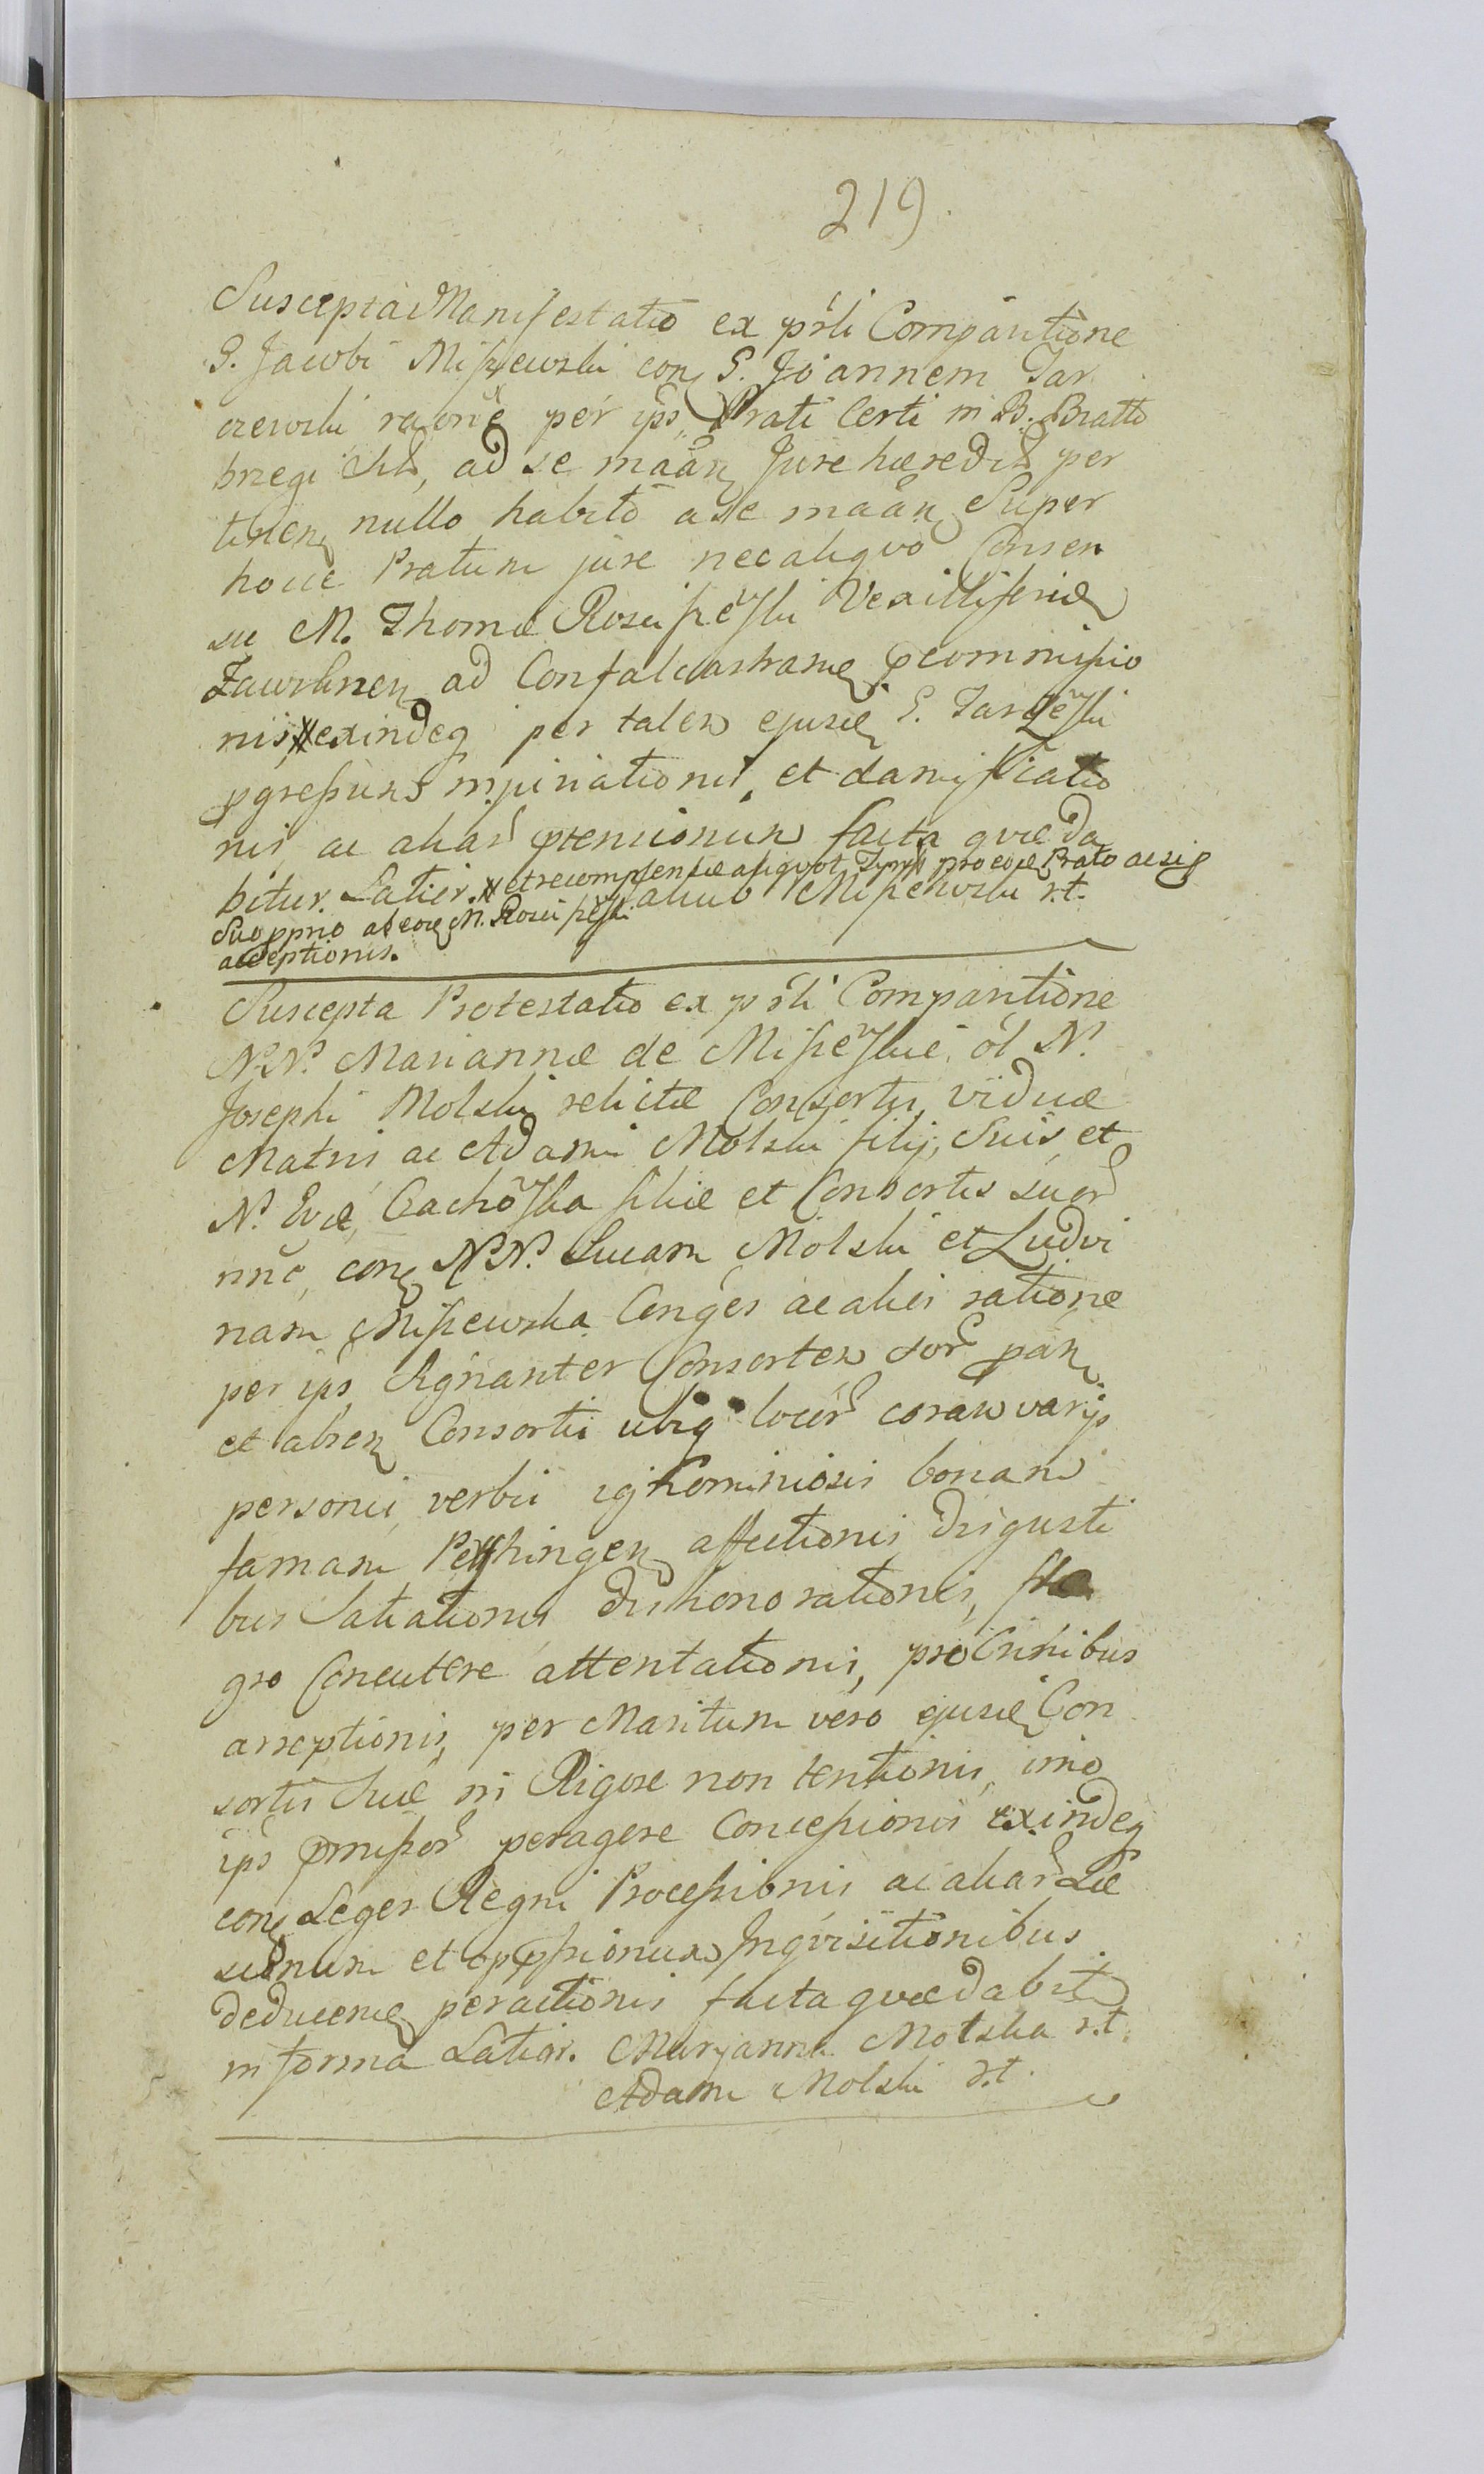 219.
Suscepta Manifestatio ex psli Compantione
G. Jacobi Miszewski con G. Joannem Tar
czewski raone per ips Prati Certi in B. Bratto
brzegi Sit, ad se maan Jure haeredit per
tinen nullo habito a se maan Super
hocce Pratum jure nec aliquo Consen
su M. Thomae Rosciszewski Vexilliferidae
Zawskrnen ad Confalcastrame pcommissio
nis, # exindeq per talem ejusde G. Tarczewski
pgressum injuriationis, et damnificatio
nis, ac aliar ptensionum facta quae da
bitur. Latior. # et recompensae aliquot pro eode Prato ac sig
Suo pprio ab eode M. Rosciszewski Miszewski r.t.
acceptionis.
Suscepta Protestatio ex psli Compantione
N.N. Mariannae de Miszewskie, ol N.
Josephi Molski relictae Consortis, viduae
Matris ac Adami Molski filij, Suis, et
N. Evae, Cachowska filiae et Consortis suor
nnc, con N.N. Lucam Molski et Ludvi
nam Miszewska Conges ac alies ratione
per ips Signanter Consortem for pan
et absen Consortis ubiq locor coram varijs
personis, verbis ignominiosis bonam
famam Perstringen affectionis disgusti
bus Satiationis dishonorationis,
gro Concutere attentationis, pro Crinibus
arreptionis, per Maritum vero ejusde Con
sortis Suae in Rigore non tentionis, imo
ips pmissor peragere Concessionis exindeq
con Leges Regni Processionis ac aliar Lae
sionum et oppssionum Inqvisitionibus
deducene peractionis facta quae dabit
in forma Latior. Maryanna Molska r.t.
Adam Molski r.t.